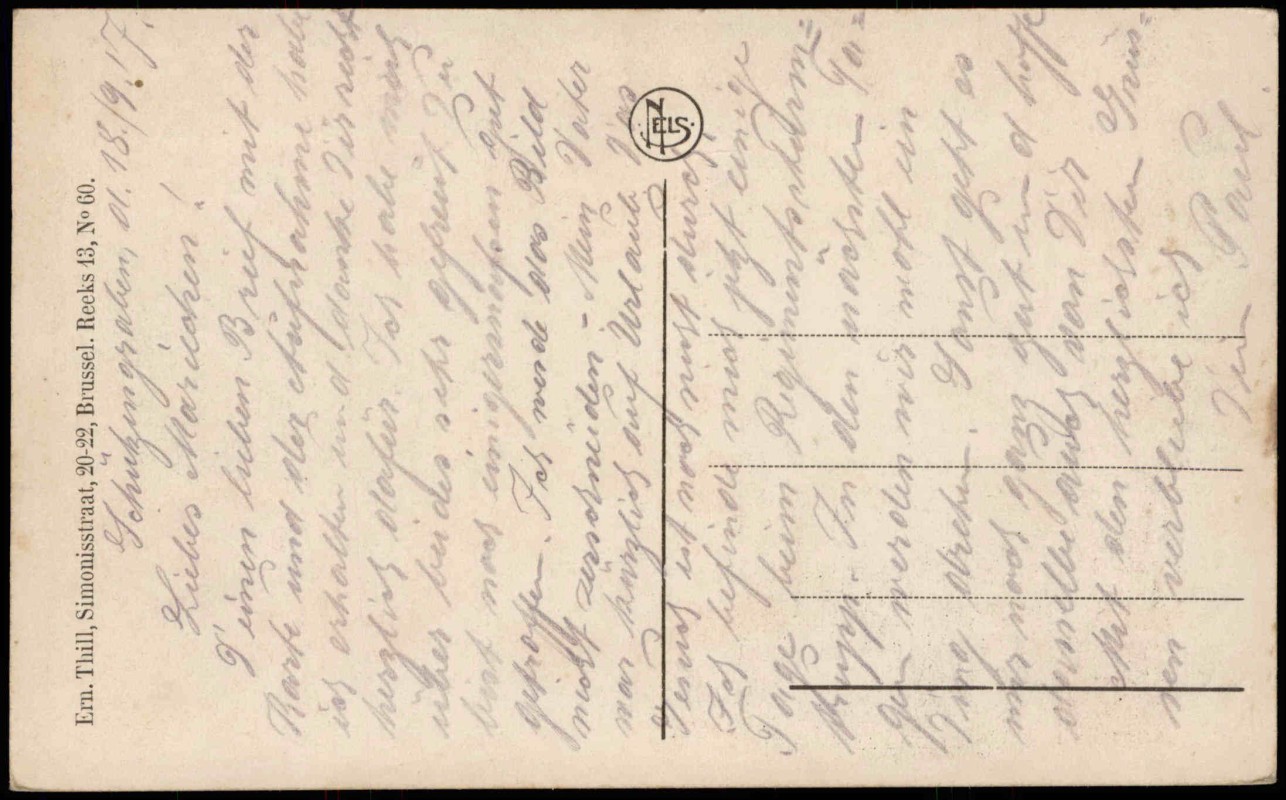 Ern. Thill, Simonisstraat, 20-22, Brussel. Reeks 13, Nº 60.
NELS
Schützengraben, d. 18./9.17.
Liebes Mariechen!
Deinen lieben Brief mit der
Karte und der Aufnahme habe
ich erhalten und danke Dir recht
herzlich dafür. Ich habe mich
über beides sehr gefreut. Du
bist noch einigermaßen gut
getroffen. Ich werde das Bild
nicht zerschneiden. Mein Vater
war kürzlich auf Urlaub. Das
ist noch nicht durch.
Ich befinde mich jetzt einige
Tage beim Regimentssturm=
trupp. In den nächsten Ta=
gen werden wir wohl ein
Ding drehen. Sonst geht es
mir noch ganz gut und hoffe
dasselbe auch von Dir
Mit den herzlichsten Grüs=
sen verbleibe ich
Dein Paul